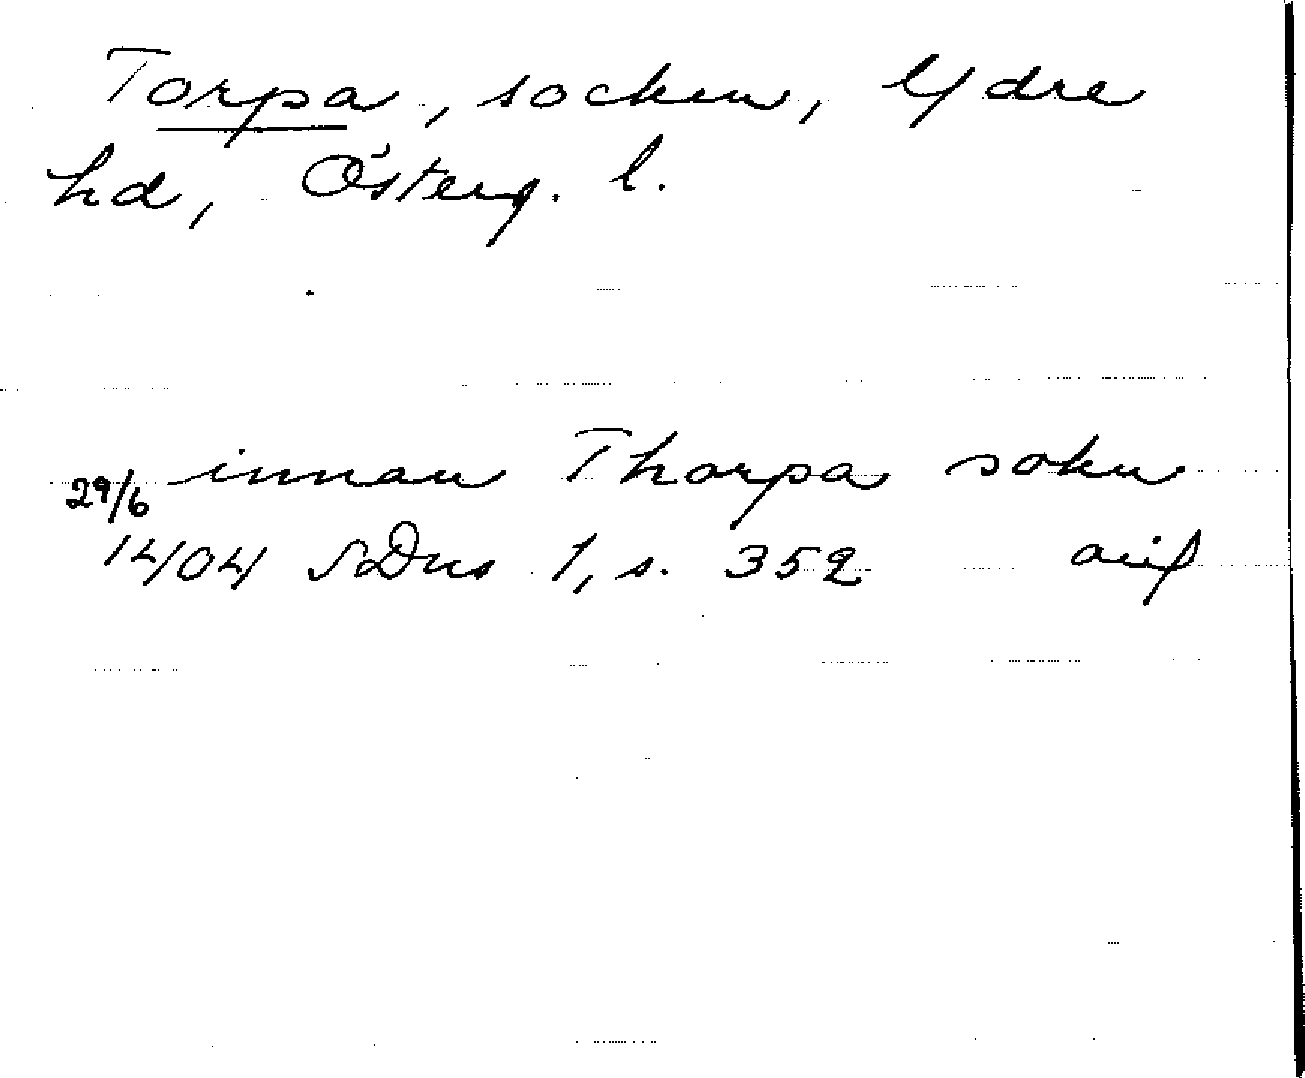 Torpa, socken, Ydre
hd, Österg. l.
innan Thorpa sokn
29/6 1404 SDns 1, s. 352